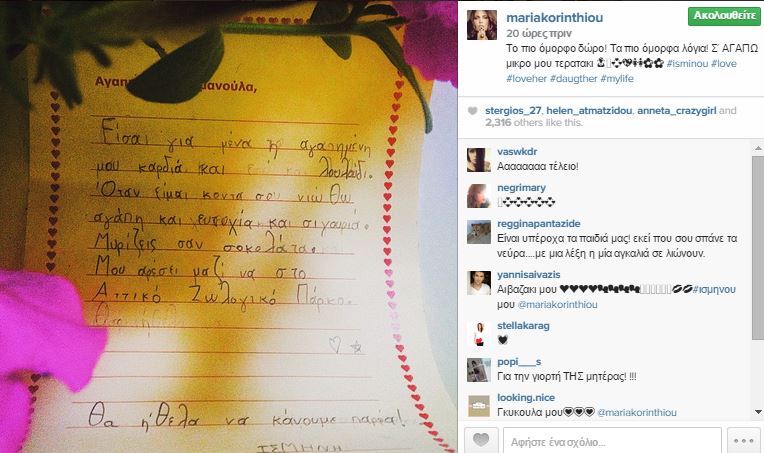 Αγαπ
ανούλα,
Είσαι για μένα η αγαπημένη
μου καρδιά και λουλούδι.
Όταν είμαι κοντα σου νιώθω
αγάπη και ευτυχία και σιγουριά.
Μυρίζεις σαν σοκολάτα.
Μου αρέσει μαζί να στο
Αττικό Ζωλογικό Πάρκο.
Θα ήθελα να κάνουμε παρέα!
ΙΣΜΗΝΗ
mariakorinthiou
Ακολουθείτε
20 ώρες πριν
Το πιο όμορφο δώρο! Τα πιο όμορφα λόγια! Σ' ΑΓΑΠΩ
μικρο μου τερατακι
#isminou #love
#loveher #daugther #mylife
stergios_27, helen_atmatzidou, anneta_crazygirl and
2,316 others like this.
vaswkdr
Ααααααααα τέλειο!
negrimary
regginapantazide
Είναι υπέροχα τα παιδιά μας! εκεί που σου σπάνε τα
νεύρα....με μια λέξη η μία αγκαλιά σε λιώνουν.
yannisaivazis
Αιβαζακι μου ♥♥♥♥ #ισμηνου
μου @mariakorinthiou
stellakarag
♥
popi___s
Για την γιορτή ΤΗΣ μητέρας! !!!
looking.nice
Γκυκουλα μου @mariakorinthiou
Αφήστε ένα σχόλιο...